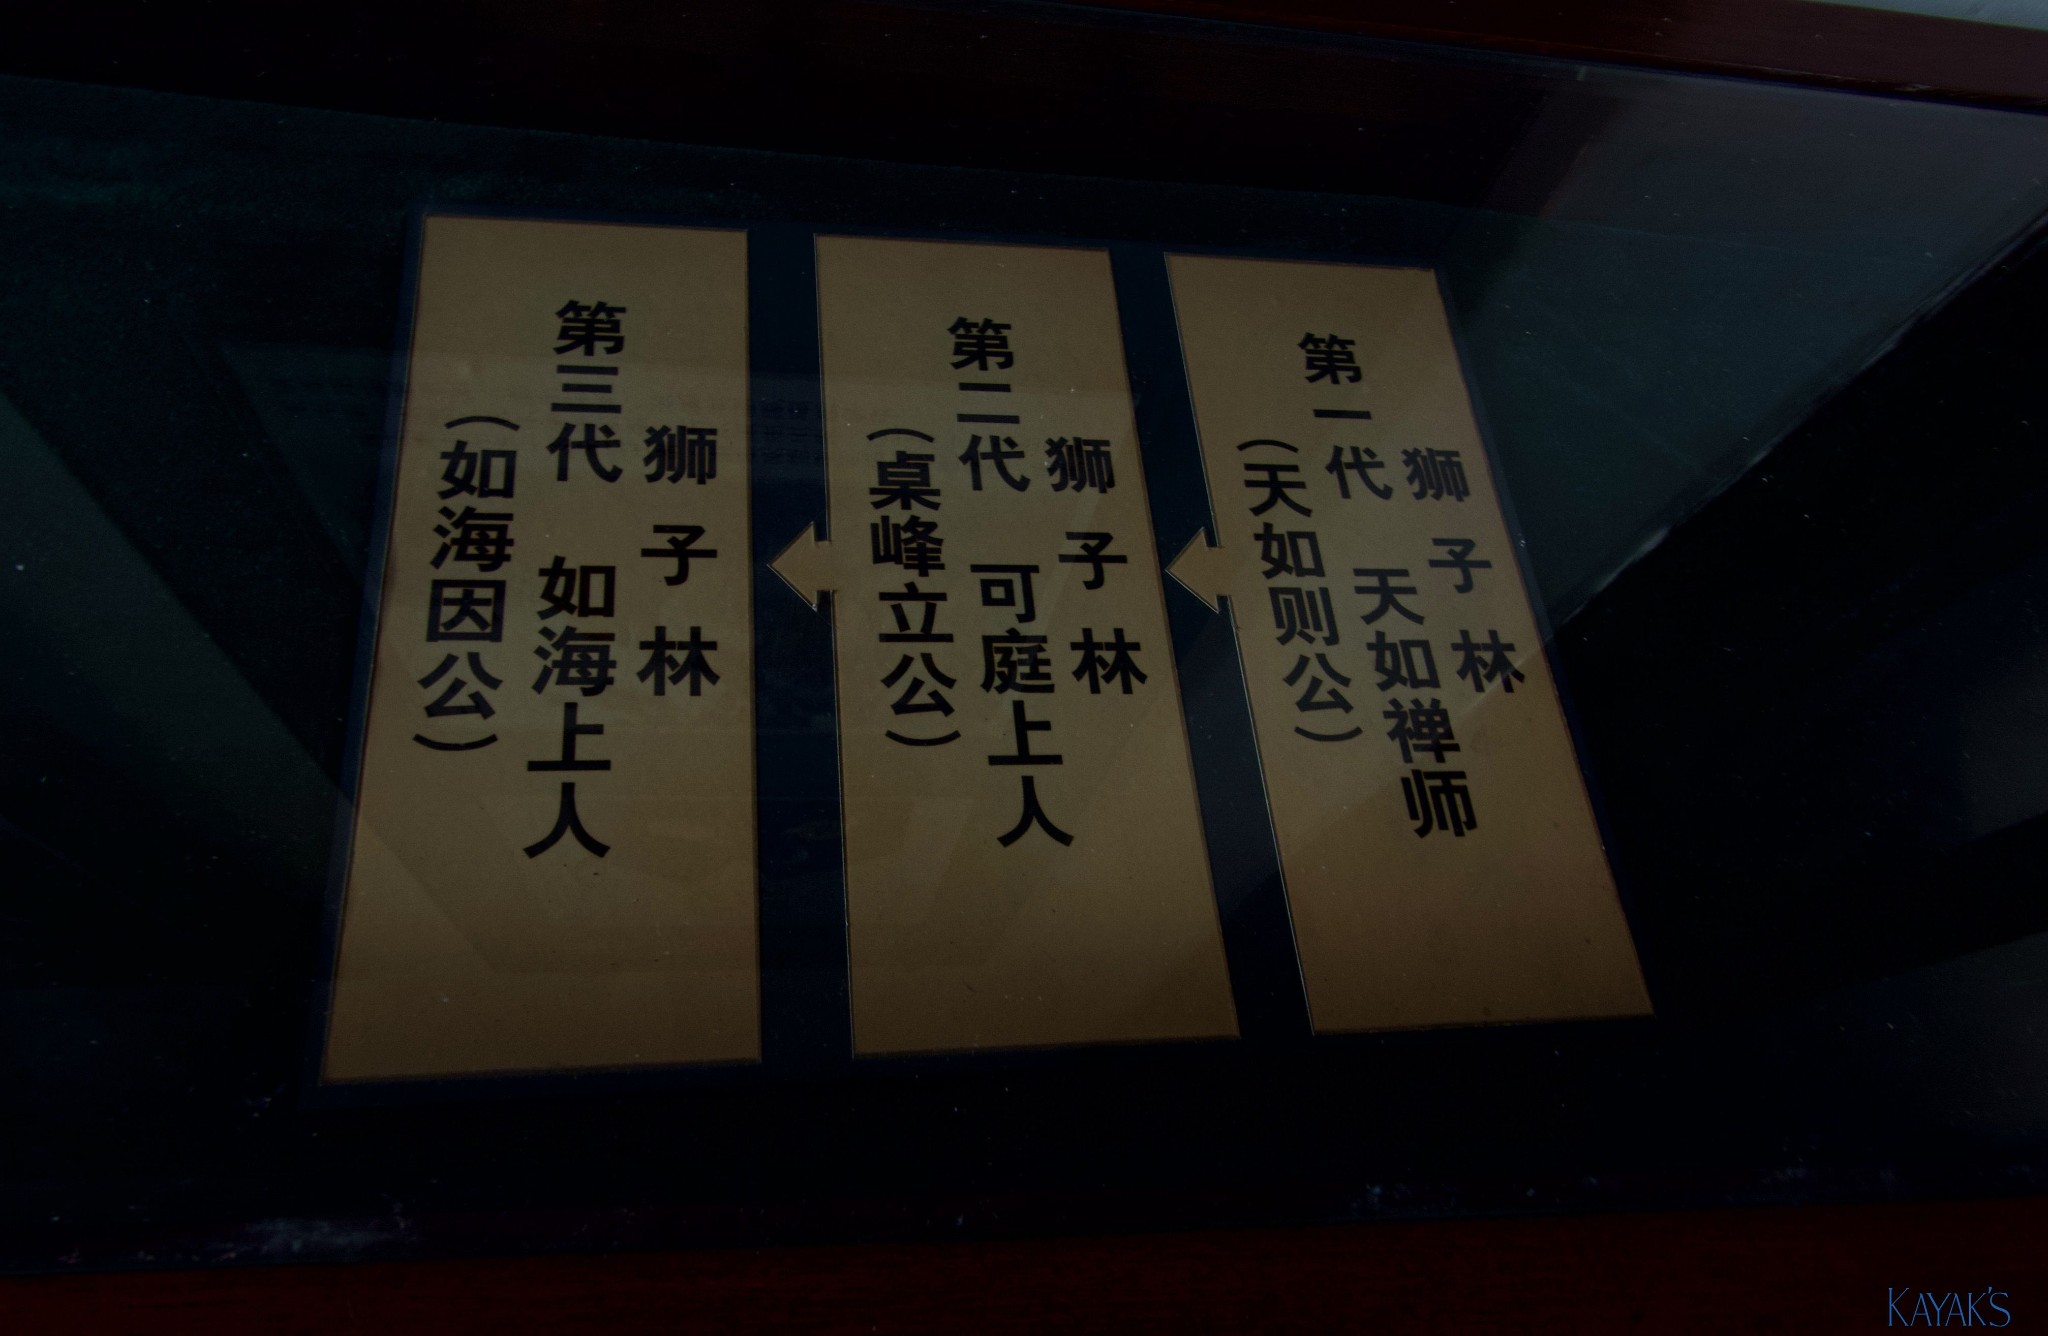 狮子林
第一代 天如禅师
（天如则公）
狮子林
第二代 可庭上人
（桌峰立公）
狮子林
第三代 如海上人
（如海因公）
KAYAK'S